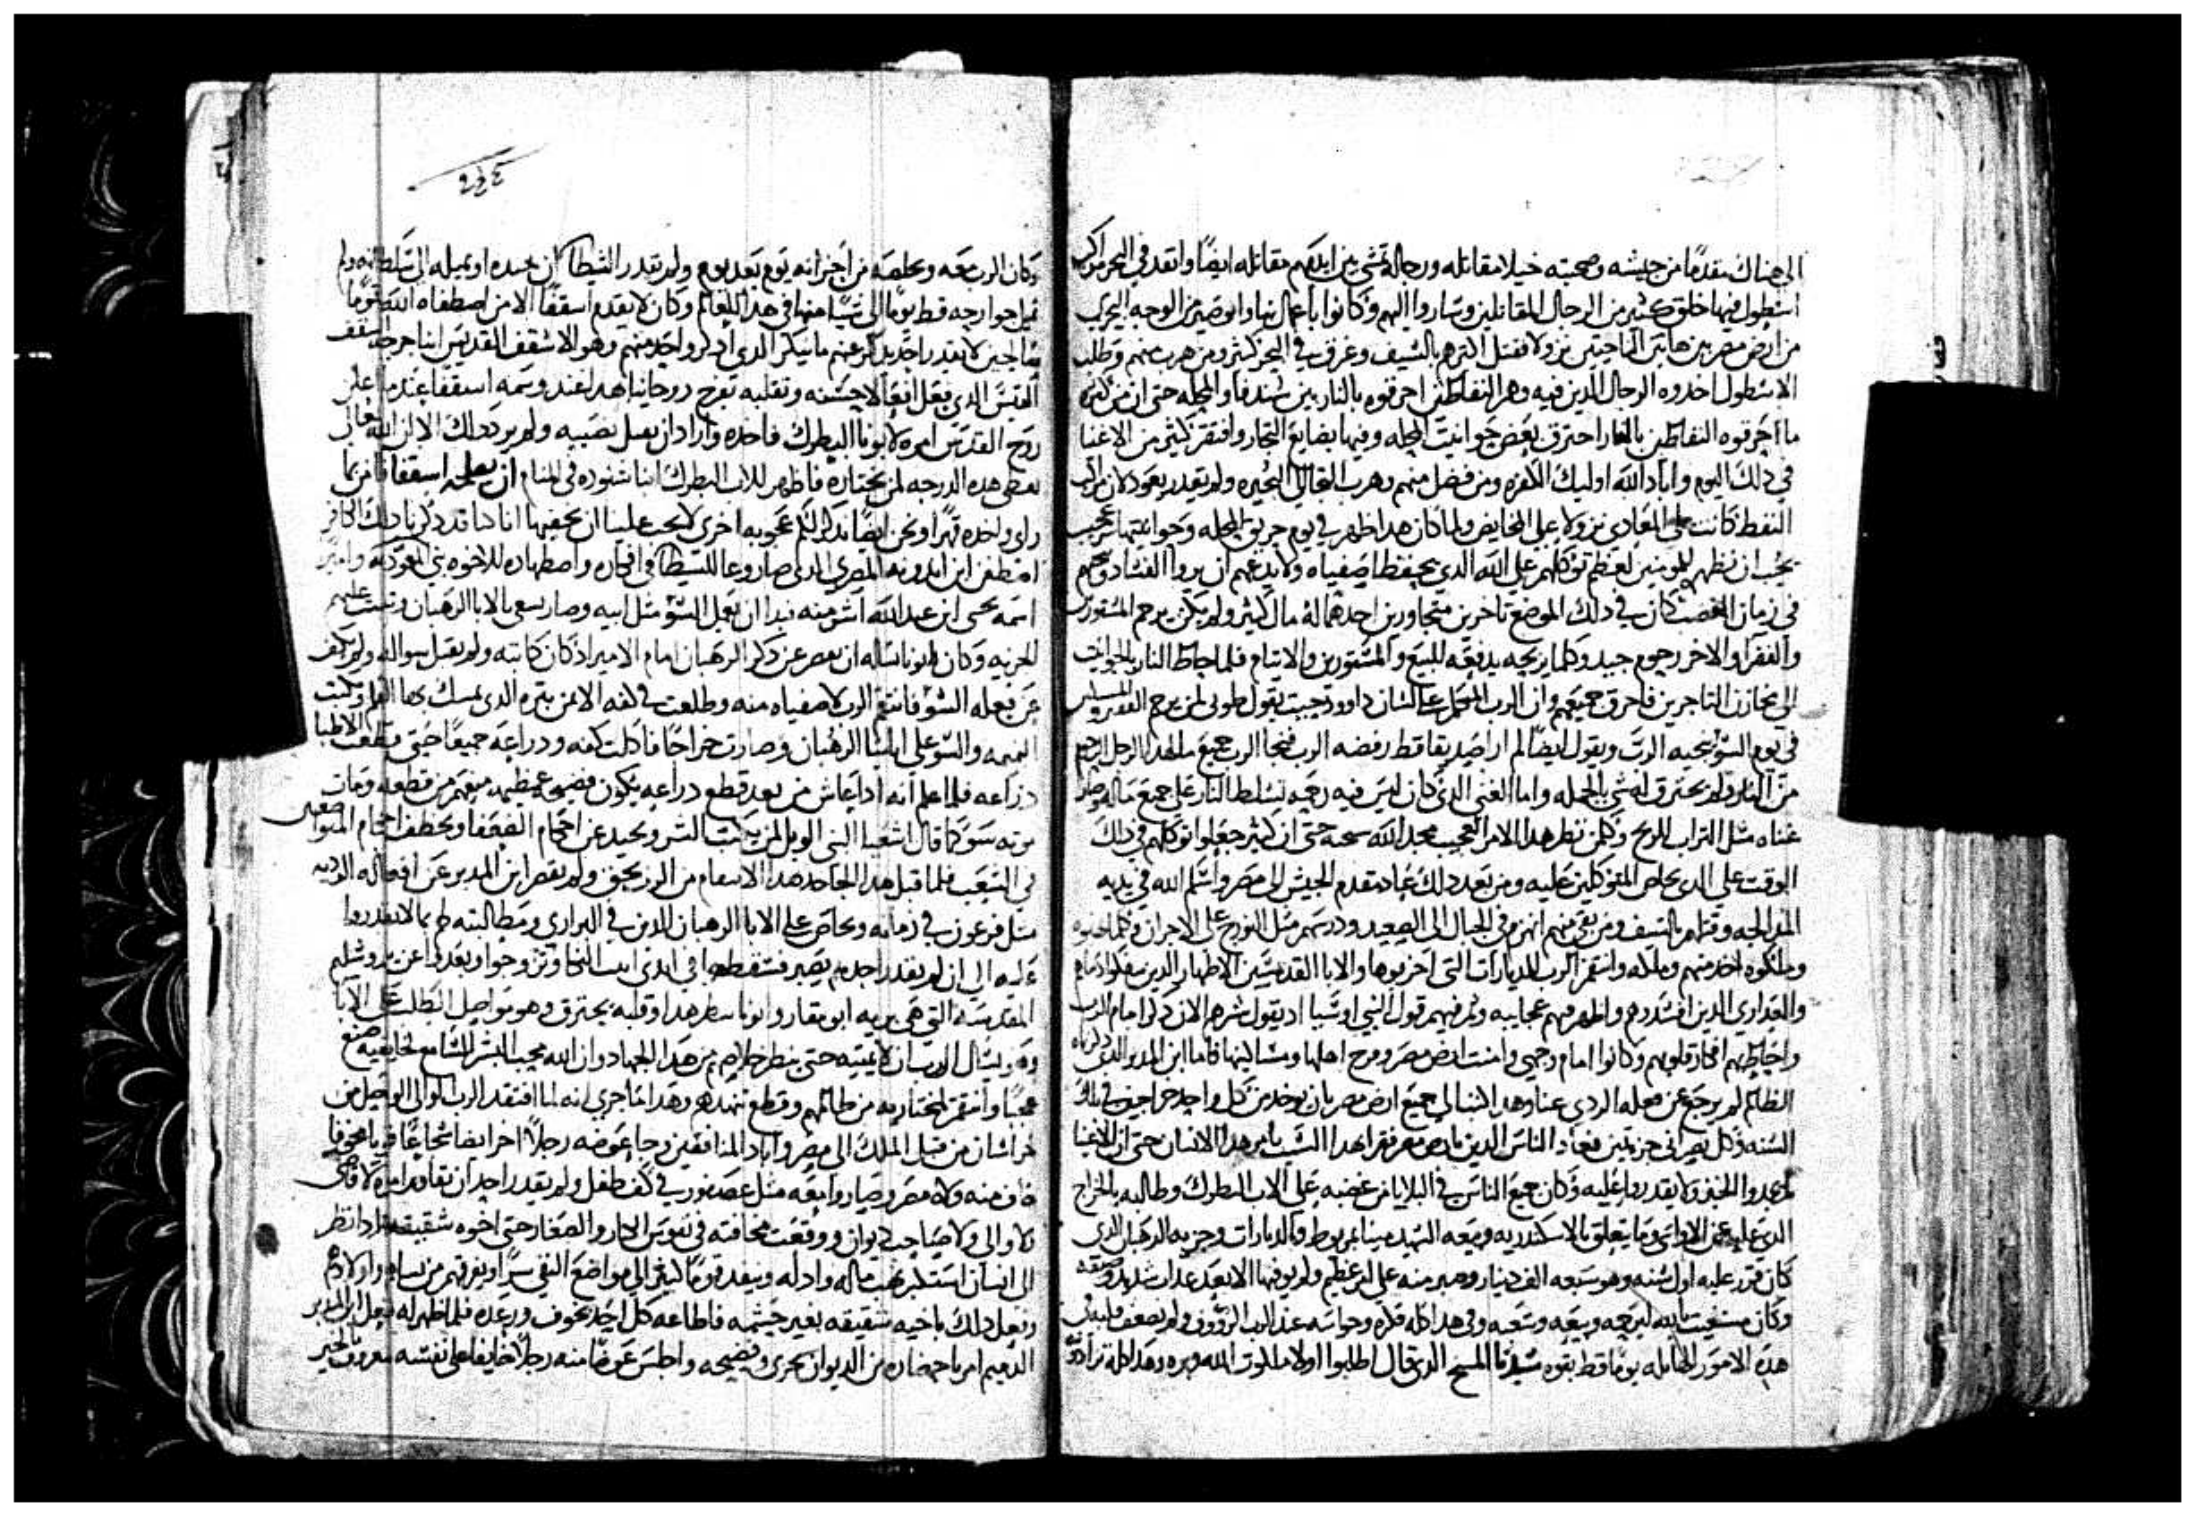 الى هناك مقدما من جيشه وصحبته خيلا مقاتله ورجاله تمشى بين ايديهم مقاتله ايضا وانفد في البحر مراكب
اسطول فيها خلق كثير من الرجال المقاتلين وساروا اليهم وكانوا باعمال بنا وابوصير من الوجه البحرى
من ارض مصر بين هاتين الناحيتين نزولا فقتل اكترهم بالسيف وغرق في البحر كثير ومن هرب منهم وطلب
الاسطول اخدوه الرجال الدين فيه وهم النفاطين احرقوه بالنار بين سندفا والمحله حتى ان من كثرة
ما احرقوه النفاطين بالنار احترق بعض حوانيت المحله وفيها بضايع التجار وافتقر كثير من الاغنيا
في دلك اليوم واباد الله اوليك الكفره ومن فضل منهم وهرب الى البحيره ولم يقدر يعود لان مراكب
النفط كانت على المعادى نزولا على المخايض ولما كان هدا ظهر في يوم حريق المحله وحوانيتها عجيب
يجب ان نظهره للمومنين لعظم توكلهم على الله الدي يحفظ اصفياه ولا يدعهم ان يروا الفساد وجميعهم
في زمان الغصب كان في دلك الموضع تاجرين متجاورين احدهما له مال كثير ولم يكن يرحم المستورين
والفقرا والاخر رحوم جيد وكلما يربحه يدفعه للبيع والمستورين والايتام فلما احاط النار بالحوانيت
الى مخازن التاجرين فاحرق جميعهم وان الرب المتكلم على لسان داوود حيت يقول طوبى لمن يرحم الفقير والمسكين
في يوم السو ينجيه الرب ويقول ايضا لم ار صديقا قط رفضه الرب فنجا الرب جميع ما لهدا الرجل الرحيم
من النار ولم يحترق له شي بالجمله واما الغني الدي كان ليس فيه رحمه تسلط النار على جميع ماله وصار
غناه مثل التراب للريح وكلمن نظر هدا الامر العجيب مجد الله سبحه حتى ان كثير جعلوا توكلهم في دلك
الوقت على الدى يخلص المتوكلين عليه ومن بعد دلك عاد مقدم الجيش الى مصر واسلم الله في يديه
المدالجه وقتلهم بالسيف ومن بقي منهم انهزم في الجبال الى الصعيد ودرسهم مثل النورج على الاجران
وملكوه احد منهم وملكه وانتقم الرب للديارات التى اخربوها والابا القديسين الاطهار الدين سفكوا دماهم
والعدارى الدين افسدوهم واظهر فيهم عجايبه وتم فيهم قول النبي اوشيا اد يقول شرهم الان دكر امام الرب
واحاط بهم افكار قلوبهم وكانوا امام وجهي وامنت ارض مصر وفرح اهلها ومساكينها فاما ابن المدبر الدى دكرناه
الظالم لم يرجع عن فعله الردى عنا وهدا انشا الى جميع ارض مصر بان يوخد من كل واحد خراجين في تلك
السنه وكل نصرانى جزيتين فعاد الناس الدين بارض مصر فقرا بهدا السبب بامر هدا الانسان حتى ان الاغنيا
لم يجدوا الخبز ولا يقدروا عليه وكان جميع الناس في البلايا من غضبه على الاب البطرك وطالبه بالخراج
الدى عليه عن الاواسى وما يتعلق بالاسكندريه وبيعه الشهيد مينا بمريوط والديارات وجزيه الرهبان الدى
كان قرر عليه اول سنه وهو سبعه الف دينار وصبر منه على امر عظيم ولم يوفيها الا بعد عداب شديد وضيقه
وكان مستغيت بالله ليرحمه وبيعه وشعبه وفي هدا كله فكره وحواسه عند الرب الرووف ولم يضعف قلبه في
هده الامور الهايله يوما قط بقوه سيدنا المسيح الدى قال اطلبوا اولا ملكوت الله وبره وهدا كله تزادوه
وكان الرب معه ويخلصه من احزانه يوم بعد يوم ولم يقدر الشيطان ان يحسده او يميله الى تسلطه ولم
تميل جوارحه قط يوما الى شيا منها في هدا العالم وكان لا يقدم اسقفا الا من اصطفاه الله قوما
صالحين لا يقدر احد يدكر عنهم ما ينكر الدى ادكر واحد منهم وهو الاسقف القديس انبا جرجه اسقف
القيس الدى فعل افعالا حسنه وتقلبه تفرح روحانيا هدا لعند وسمه اسقفا عندما علن
روح القدس امره لابونا البطرك فاخده واراد ان يعمل نصيبه ولم يرد دلك الا لان الله تعالى
يعطى هده الدرجه لمن يختاره فاظهر للاب البطرك انبا شنوده في المنام ان يعمله اسقفا فامر بما
راى واخده قهرا ونحن ايضا ندكر لكم عجوبه اخرى لا يجب علينا ان نخفيها اننا قد دكرنا دلك الكافر
اصطفن ابن اندونه المصرى الدى صار وعا للشيطان في افكاره واضطهاده للاخوه بنى المعموديه وابنه
اسمه يحيى ابن عبد الله اشر منه فبدا ان يعمل السو مثل ابيه وصار يسعى بالابا الرهبان ويثبت عليهم
الجزيه وكان ابونا يساله ان يصبر عن دكر الرهبان امام الامير اد كان كاتبه ولم يقبل سواله ولم يكف
عن فعله السو فانتقم الرب لاصفياه منه وطلعت في كفه الايمن بثره الدى يمسك بها القلم ويكتب
النميمه والسو على ابايينا الرهبان وصارت خراجا فاكلت كفه ودراعه جميعا حتى قطعت الاطبا
دراعه فلما علم انه ادا عاش من بعد قطع دراعه يكون فضيحه عظيمه منعهم من قطعه ومات
موته سو كما قال اشعيا النبى الويل لمن يكتب الشر ويحيد عن احكام الضعفا ويخطف احكام المتواضعين
في الشعب فلما قبل هدا الجاحد هدا الانتقام من الرب بحق ولم يقصر ابن المدبر عن افعاله الرديه
مثل فرعون في زمانه وتحامل على الابا الرهبان الدين في البرارى ومطالبته لهم بما لا يقدروا
عليه الى ان لم يقدر احد منهم يصبر فسقطوا في ايدى النسا وتزوجوا وبعدوا عن يروشليم
المقدسه التى هى بريه ابو مقار وابونا ينظر هدا وقلبه يحترق وهو مواصل الطلب على الابا
وهو يسال الرب ان لا يميته حتى ينظر خلاصهم من هدا الجهاد وان الله محب البشر السامع لخايفيه صنع
عجبا وانتقم لمختاريه من ظالمهم وقطع تنهدهم وهدا ما جرى انه لما افتقد الرب الوالى الواصل من
خراسان من قبل الملك الى مصر واباد المنافقين وجا عوضه رجلا اخر ايضا شجاعا قويا مخوفا
خاف منه ولاه مصر وصاروا معه مثل عصفور في كف طفل ولم يقدر احد ان يقاوم امره لا قاضى
ولا والى ولا صاحب ديوان ووقعت مخافته في نفوس الكبار والصغار حتى اخوه شقيقه ادا نظر
الى انسان استكبر نهب ماله وادله وينفد قوما كثير الى مواضع النفى سرا ويفرقهم من نساهم واولادهم
وفعل دلك باخيه شقيقه بغير حشمه فاطاعه كل احد بخوف ورعده فلما ظهر له فعل ابن المدبر
الدميم امر باحضاره من الديوان بخزى وفضيحه واجلس عوضا منه رجلا خايفا على نفسه معروف بالخير